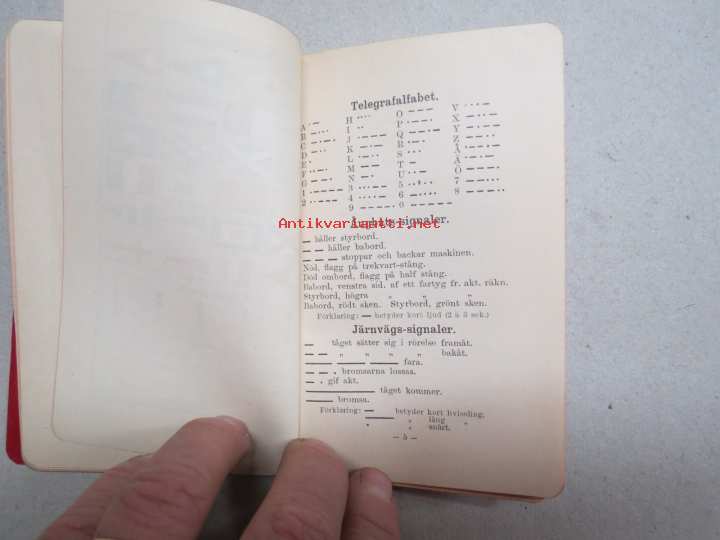 Telegrafalfabet.
A · —
B — · · ·
C — · — ·
D — · ·
E ·
F · · — ·
G — — ·
1 · — — — —
2 · · — — —
H · · · ·
I · ·
J · — — —
K — · —
L · — · ·
M — —
N — ·
3 · · · — —
4 · · · · —
9 — — — — ·
O — — —
P · — — ·
Q — — · —
R · — ·
S · · ·
T —
U · · —
5 · · · · ·
6 — · · · ·
0 — — — — —
V · · · —
X — · · —
Y — · — —
Z — — · ·
Å · — — · —
Ä · — · —
Ö — — — ·
7 — — · · ·
8 — — — · ·
Antikvariaatti.net
Ångbåts-signaler.
— håller styrbord.
— — håller babord.
— — — stoppar och backar maskinen.
Nöd, flagg på trekvart-stång.
Död ombord, flagg på half stång.
Babord, venstra sid. af ett fartyg fr. akt. räkn.
Styrbord, högra „ „ „
Babord, rödt sken. Styrbord, grönt sken.
Förklaring: — betyder kort ljud (2 à 3 sek.)
Järnvägs-signaler.
— tåget sätter sig i rörelse framåt.
— — „ „ „ „ bakåt.
—— —— —— fara.
— — . bromsarna lossas.
— . gif akt.
———— tåget kommer.
—— bromsa.
Förklaring: — betyder kort hvissling.
—— „ lång „
. „ snärt.
— 5 —